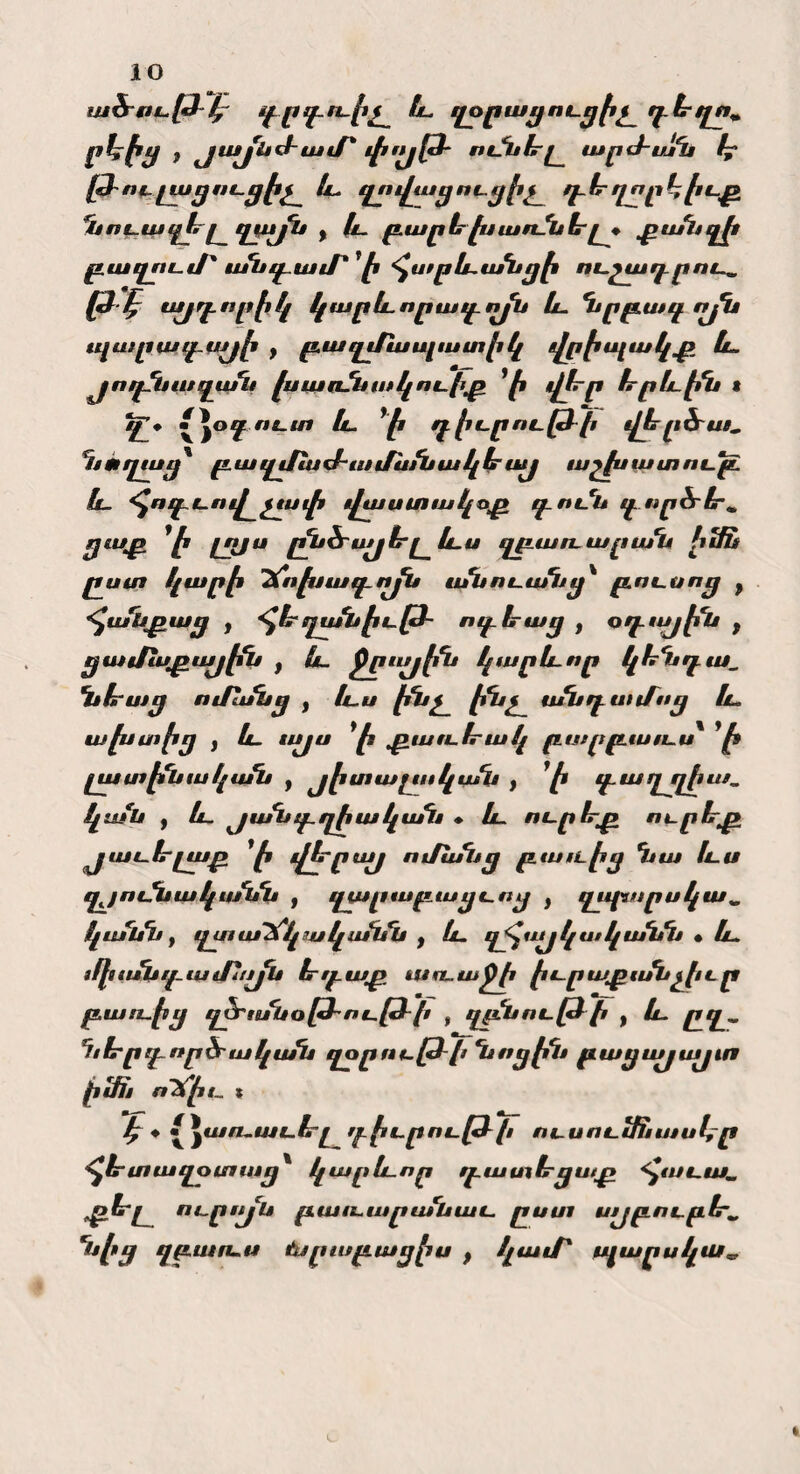 10
ածուԹ՟Է գրգռիչ և զօրացուցիչ դեղո֊
րէից , յայնժամ փոյԹ ունել արժան է
Թուլացուցիչ և զովացուցիչ դեղորէիւք
նուազել զայն , և բարեխառնել ․ քանզի
բազում անգամ ՚ի հարևանցի ուշադրու֊
Թ՟Ե այդորիկ կարևորագոյն և նրբագոյն
պարագայի , բազմապատիկ վրիպակք և
յոգնազան խառնակուիք ՚ի վեր երևին ։
Դ․ Յօգուտ և ՚ի դիւրուԹի վերծա֊
նողաց՝ բազմաժամանակեայ աշխատուբ
և հոգւով չափ վաստակօք գուն գործե֊
ցաք ՚ի լոյս ընծայել ևս զբառարան իմն
ըստ կարի ճոխագոյն անուանց՝ բուսոց ,
հանքաց , հեղանիւԹ ոգեաց , օդային ,
ցամաքային , և ջրային կարևոր կենդա֊
նեաց ոմանց , ևս ինչ ինչ անդամոց և
ախտից , և այս ՚ի քառեակ բարբառս՝ ՚ի
լատինական , յիտալական , ՚ի գաղղիա֊
կան , և յանգղիական ․ և ուրեք ուրեք
յաւելաք ՚ի վերայ ոմանց բառից նա ևս
զյունականն , զարաբացւոց , զպարսկա֊
կանն , զտաճկականն , և զհայկականն ․ և
միանգամայն եդաք առաջի իւրաքանչիւր
բառից զծանօԹուԹի , զբնուԹի , և ըզ֊
ներգործական զօրուԹի նոցին բացայայտ
իմն ոճիւ ։
Ե․ Յառաւել դիւրուԹի ուսումնասէր
հետազօտաց՝ կարևոր դատեցաք հաւա֊
քել ուրոյն բառարանաւ ըստ այբուբե֊
նից զբառս Արաբացիս , կամ պարսկա֊